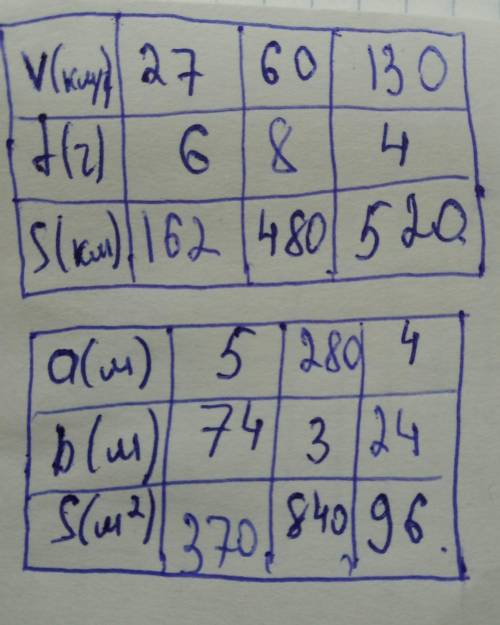 V(км/ч) 27 60 130
t(г) 6 8 4
S(км) 162 480 520
a(м) 5 280 4
b(м) 74 3 24
S(м²) 370 840 96